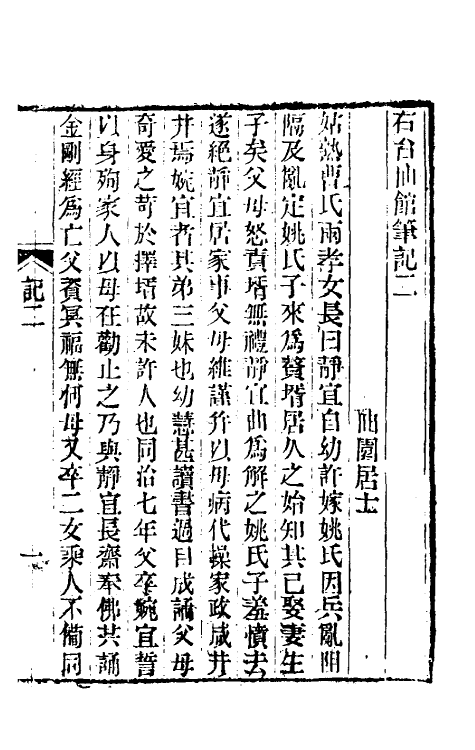 右台仙館筆記二
曲園居士
姑孰曹氏兩孝女長曰靜宜自幼許嫁姚氏因兵亂阻
隔及亂定姚氏子來為贅壻居久之始知其已娶妻生
子矣父母怒責壻無禮靜宜曲為解之姚氏子羞憤去
遂絕靜宜居家事父母維謹幷以母病代操家政咸井
井焉婉宜者其弟三妹也幼慧甚讀書過目成誦父母
奇愛之苛於擇壻故未許人也同治七年父卒婉宜誓
以身殉家人以母在勸止之乃與靜宜長齋奉佛共誦
金剛經為亡父資冥福無何母又卒二女乘人不備同
記二
一